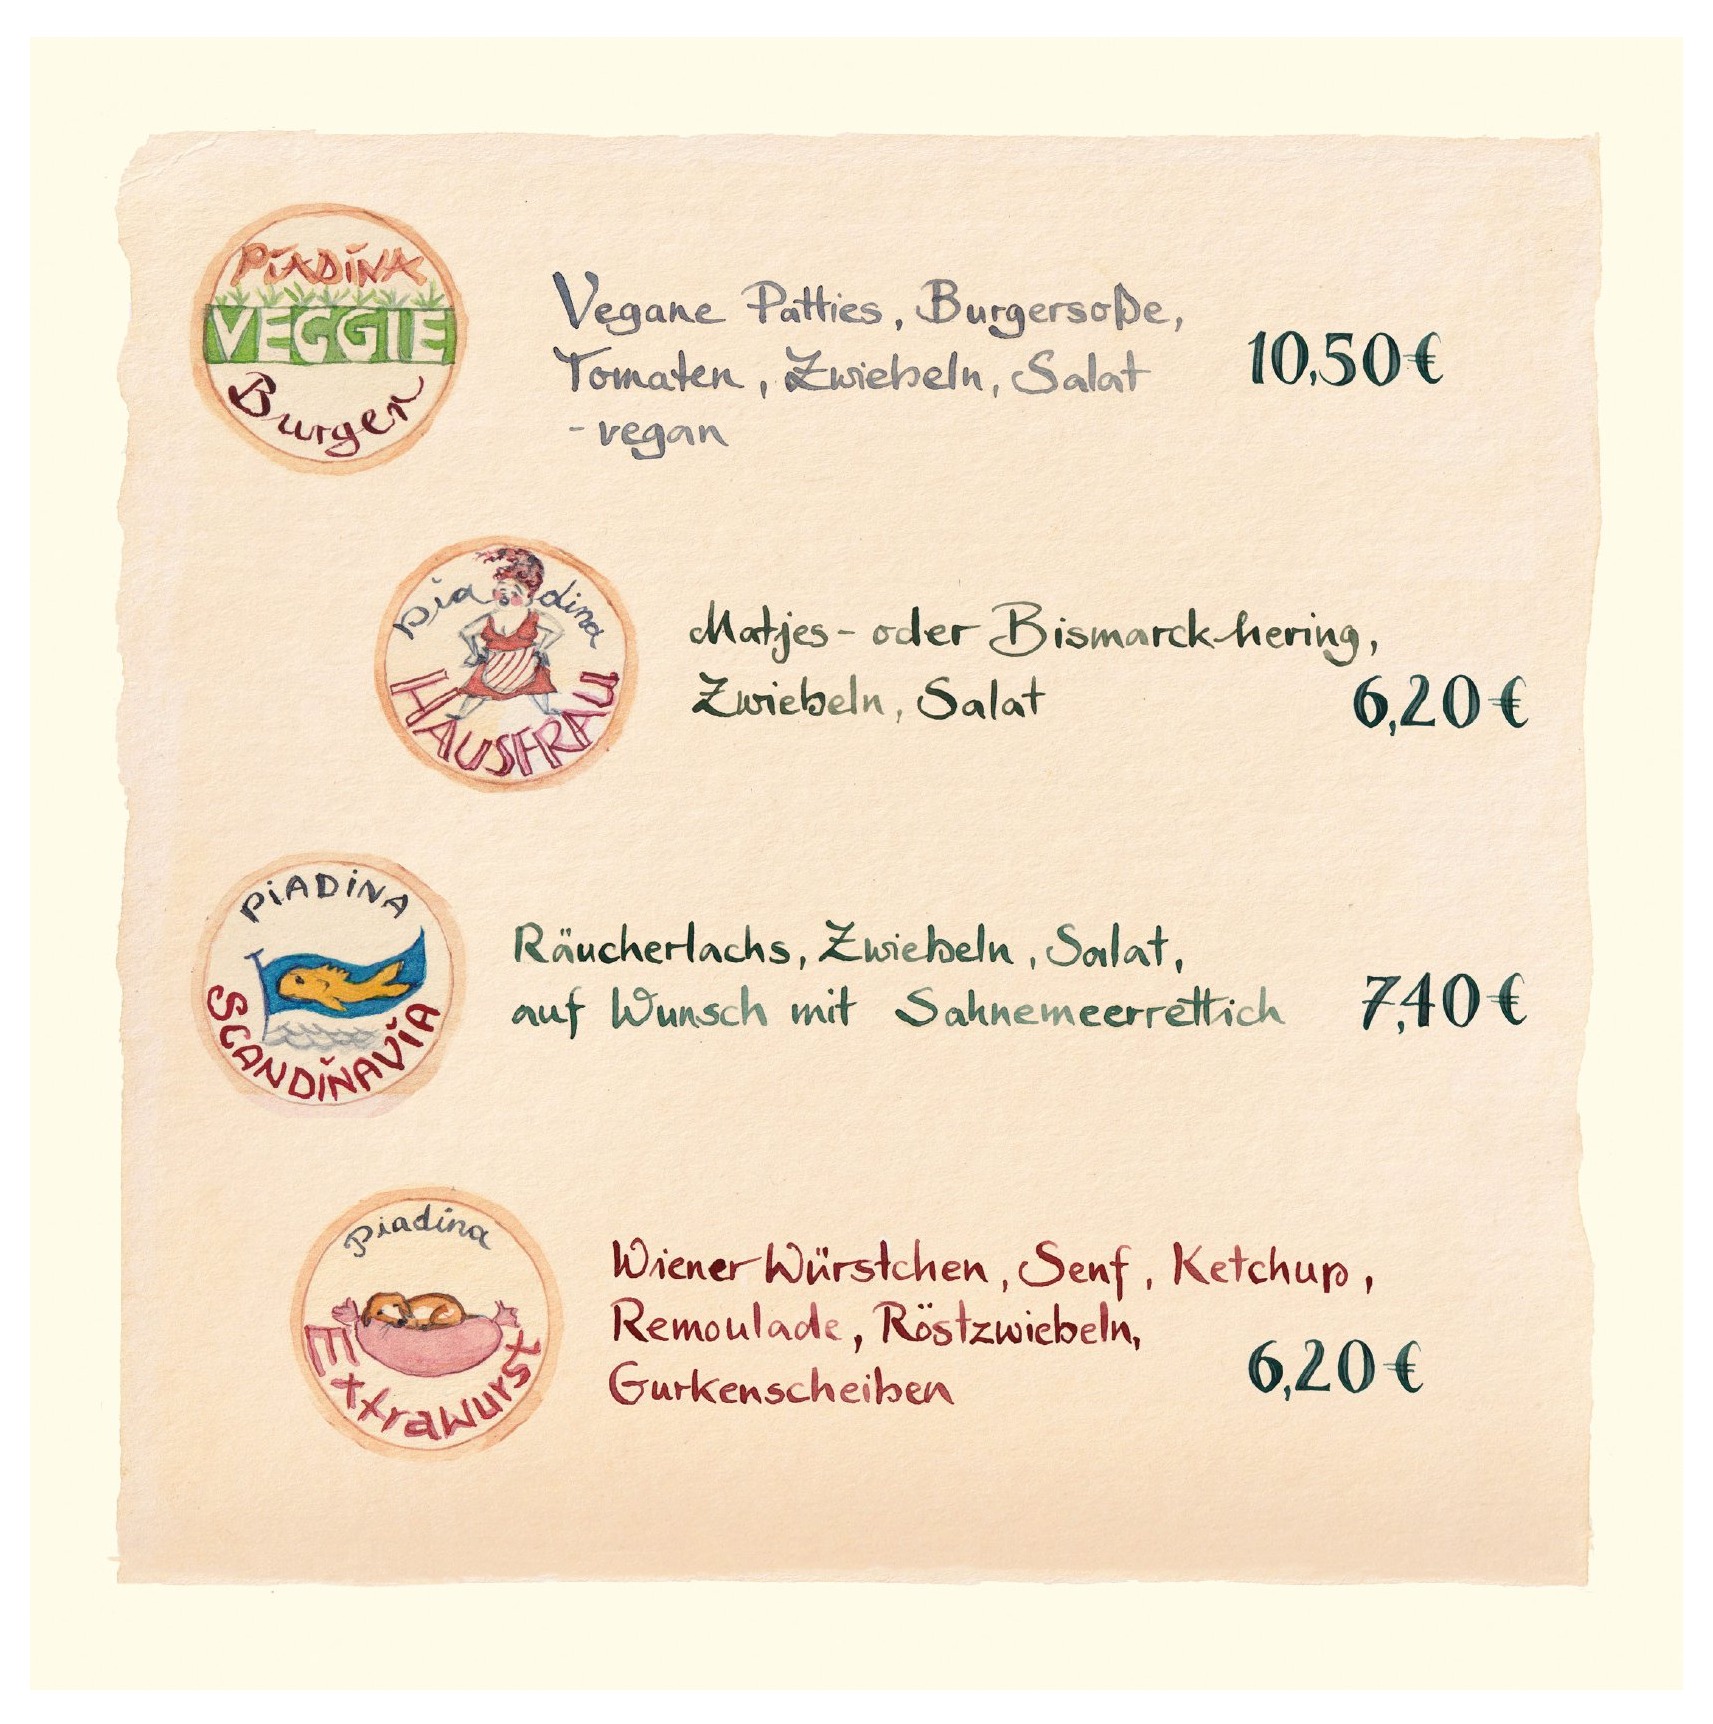 PiADiNA
VEGGIE
Burger
Vegane Patties, Burgersoße,
Tomaten, Zwiebeln, Salat
- vegan
10,50 €
piadina
HAUSFRAU
Matjes- oder Bismarckhering,
Zwiebeln, Salat
6,20 €
PiADiNA
SCANDiNAViA
Räucherlachs, Zwiebeln, Salat,
auf Wunsch mit Sahnemeerrettich
7,40 €
Piadina
Extrawurst
Wiener Würstchen, Senf, Ketchup,
Remoulade, Röstzwiebeln,
Gurkenscheiben
6,20 €